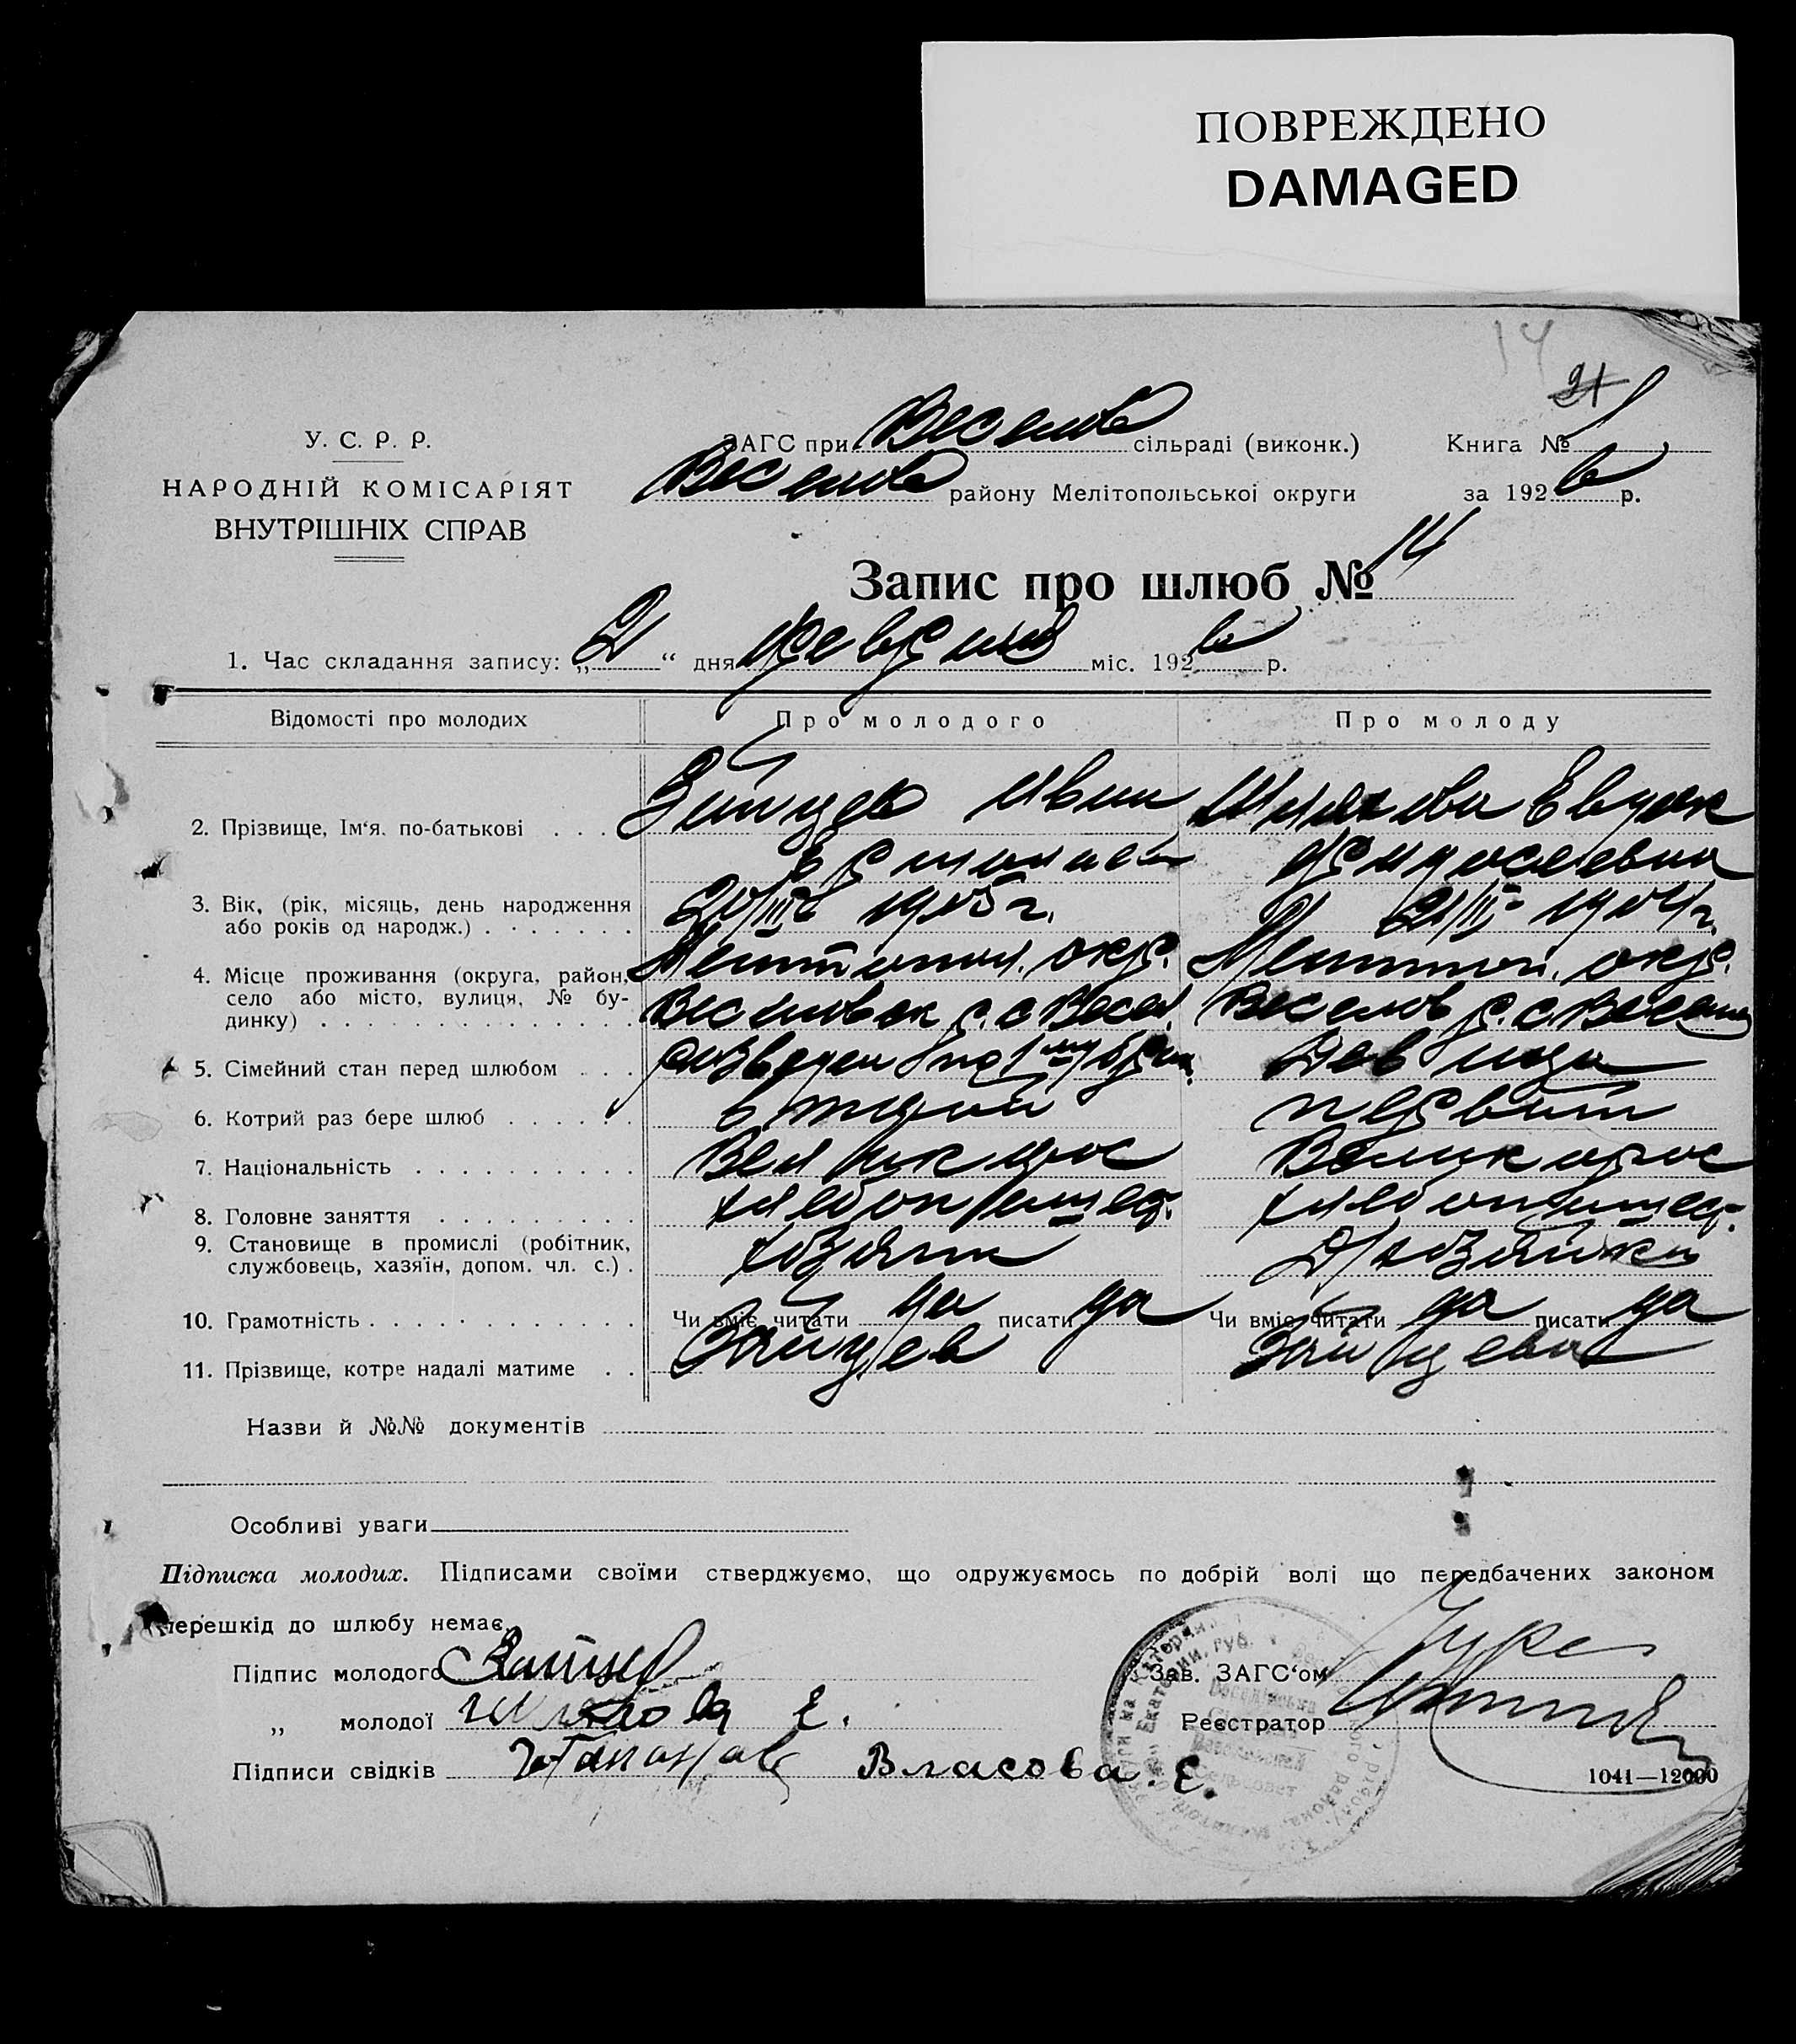 ПОВРЕЖДЕНО
DAMAGED
14
21
У. С. Р. Р.
НАРОДНІЙ КОМІСАРІЯТ
ВНУТРІШНІХ СПРАВ
ЗАГС при Веселов сільраді (виконк.) Книга №
Веселов району Мелітопольської округи за 1926 р.
Запис про шлюб № 14
1. Час складання запису: „2“ дня февраля міс. 1926 р.
Відомості про молодих Про молодого Про молоду
2. Прізвище, Ім‘я, по-батькові . . . Зайцев Иван Евдок
3. Вік, (рік, місяць, день народження або років од народж.) . . . . . . . 1905 г. 1904 г.
4. Місце проживання (округа, район, село або місто, вулиця, № будинку) . . . Мелитопол. окр. Мелитоп. окр.
Веселовск р. с Весел. Веселов р. с Весел
5. Сімейний стан перед шлюбом . . . разведен по 1му брак. Девица
6. Котрий раз бере шлюб . . . . . . второй первый
7. Національність . . . . . . . . . . Великорос Великорос
8. Головне заняття . . . . . . . . . хлебопашец. хлебопашец.
9. Становище в промислі (робітник, службовець, хазяїн, допом. чл. с.) . хозяин Д/хозяйка
10. Грамотність . . . . . . . . . . . . Чи вміє читати да писати да Чи вміє читати да писати да
11. Прізвище, котре надалі матиме . . Зайцев Зайцева
Назви й №№ документів
Особливі уваги
Підписка молодих. Підписами своїми стверджуємо, що одружуємось по добрій волі що передбачених законом
перешкід до шлюбу немає.
Підпис молодого Зайцев Зав. ЗАГС‘ом
„ молодої Е. Реєстратор
Підписи свідків Власова. Е.
1041—12000